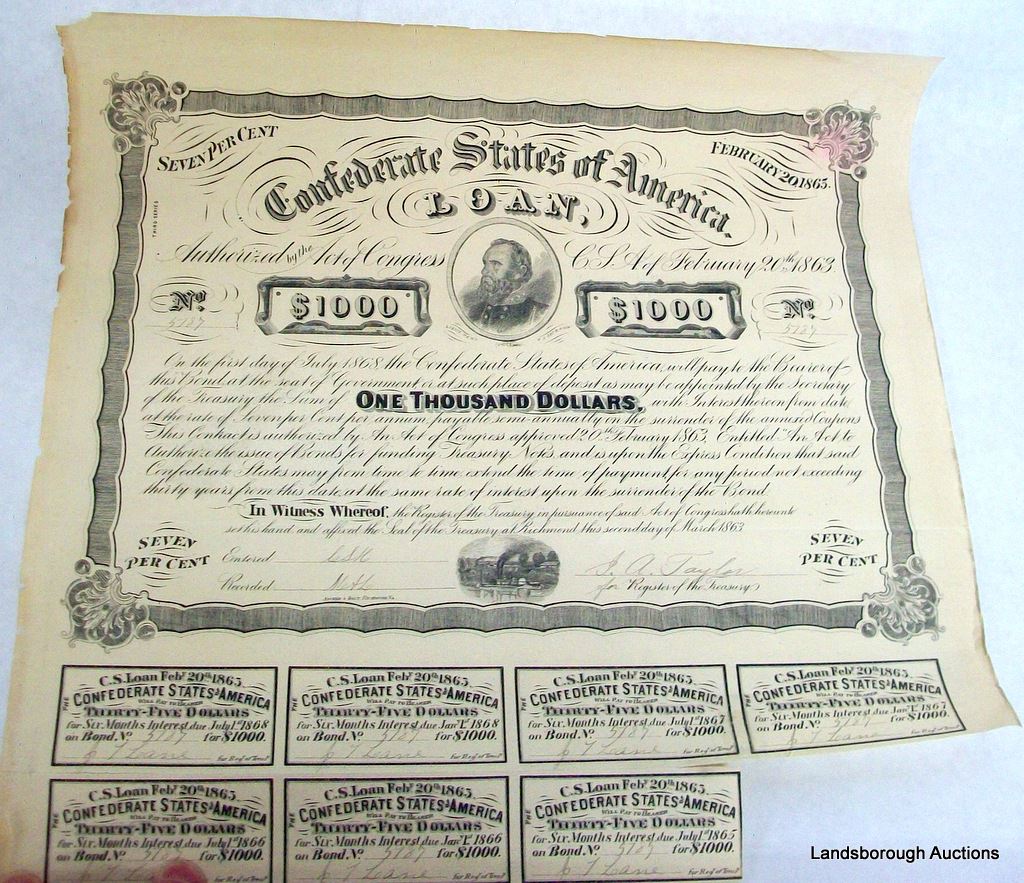 SEVEN PER CENT
FEBRUARY 20, 1863.
Confederate States of America.
LOAN,
THIRD SERIES
Authorized by the Act of Congress C.S.A. of February 20th 1863
No. $1000 $1000 No.
5189 5189
On the first day of July 1868 the Confederate States of America, will pay to the Bearer of
this Bond, at the seat of Government or at such place of deposit as may be appointed by the Secretary
of the Treasury the Sum of ONE THOUSAND DOLLARS, with Interest thereon from date
at the rate of Seven per Cent per annum payable semi-annually on the surrender of the annexed Coupons
This Contract is authorized by An Act of Congress approved 20th February 1863, Entitled An Act to
Authorize the issue of Bonds for funding Treasury Notes, and is upon the Express Condition that said
Confederate States may from time to time extend the time of payment for any period not exceeding
thirty years from this date, at the same rate of interest upon the surrender of the Bond
In Witness Whereof, the Register of the Treasury in pursuance of said Act of Congress hath hereunto
set his hand and affixed the Seal of the Treasury at Richmond this second day of March 1863
SEVEN PER CENT
Entered
Recorded
J. A. Taylor
for Register of the Treasury
SEVEN PER CENT
C.S. Loan Feby 20th 1863.
THE CONFEDERATE STATES of AMERICA
WILL PAY TO BEARER
THIRTY-FIVE DOLLARS
for Six Months Interest due July 1st 1868
on Bond. No. 5189 for $1000.
J T Lane
For Reg of Treasy
C.S. Loan Feby 20th 1863.
THE CONFEDERATE STATES of AMERICA
WILL PAY TO BEARER
THIRTY-FIVE DOLLARS
for Six Months Interest due Jany 1st 1868
on Bond. No. 5189 for $1000.
J T Lane
For Reg of Treasy
C.S. Loan Feby 20th 1863.
THE CONFEDERATE STATES of AMERICA
WILL PAY TO BEARER
THIRTY-FIVE DOLLARS
for Six Months Interest due July 1st 1867
on Bond. No. 5189 for $1000.
J T Lane
For Reg of Treasy
C.S. Loan Feby 20th 1863.
THE CONFEDERATE STATES of AMERICA
WILL PAY TO BEARER
THIRTY-FIVE DOLLARS
for Six Months Interest due Jany 1st 1867
on Bond. No. 5189 for $1000.
J T Lane
For Reg of Treasy
C.S. Loan Feby 20th 1863.
THE CONFEDERATE STATES of AMERICA
WILL PAY TO BEARER
THIRTY-FIVE DOLLARS
for Six Months Interest due July 1st 1866
on Bond. No. 5189 for $1000.
J T Lane
For Reg of Treasy
C.S. Loan Feby 20th 1863.
THE CONFEDERATE STATES of AMERICA
WILL PAY TO BEARER
THIRTY-FIVE DOLLARS
for Six Months Interest due Jany 1st 1866
on Bond. No. 5189 for $1000.
J T Lane
For Reg of Treasy
C.S. Loan Feby 20th 1863.
THE CONFEDERATE STATES of AMERICA
WILL PAY TO BEARER
THIRTY-FIVE DOLLARS
for Six Months Interest due July 1st 1865
on Bond. No. 5189 for $1000.
J T Lane
For Reg of Treasy
Landsborough Auctions